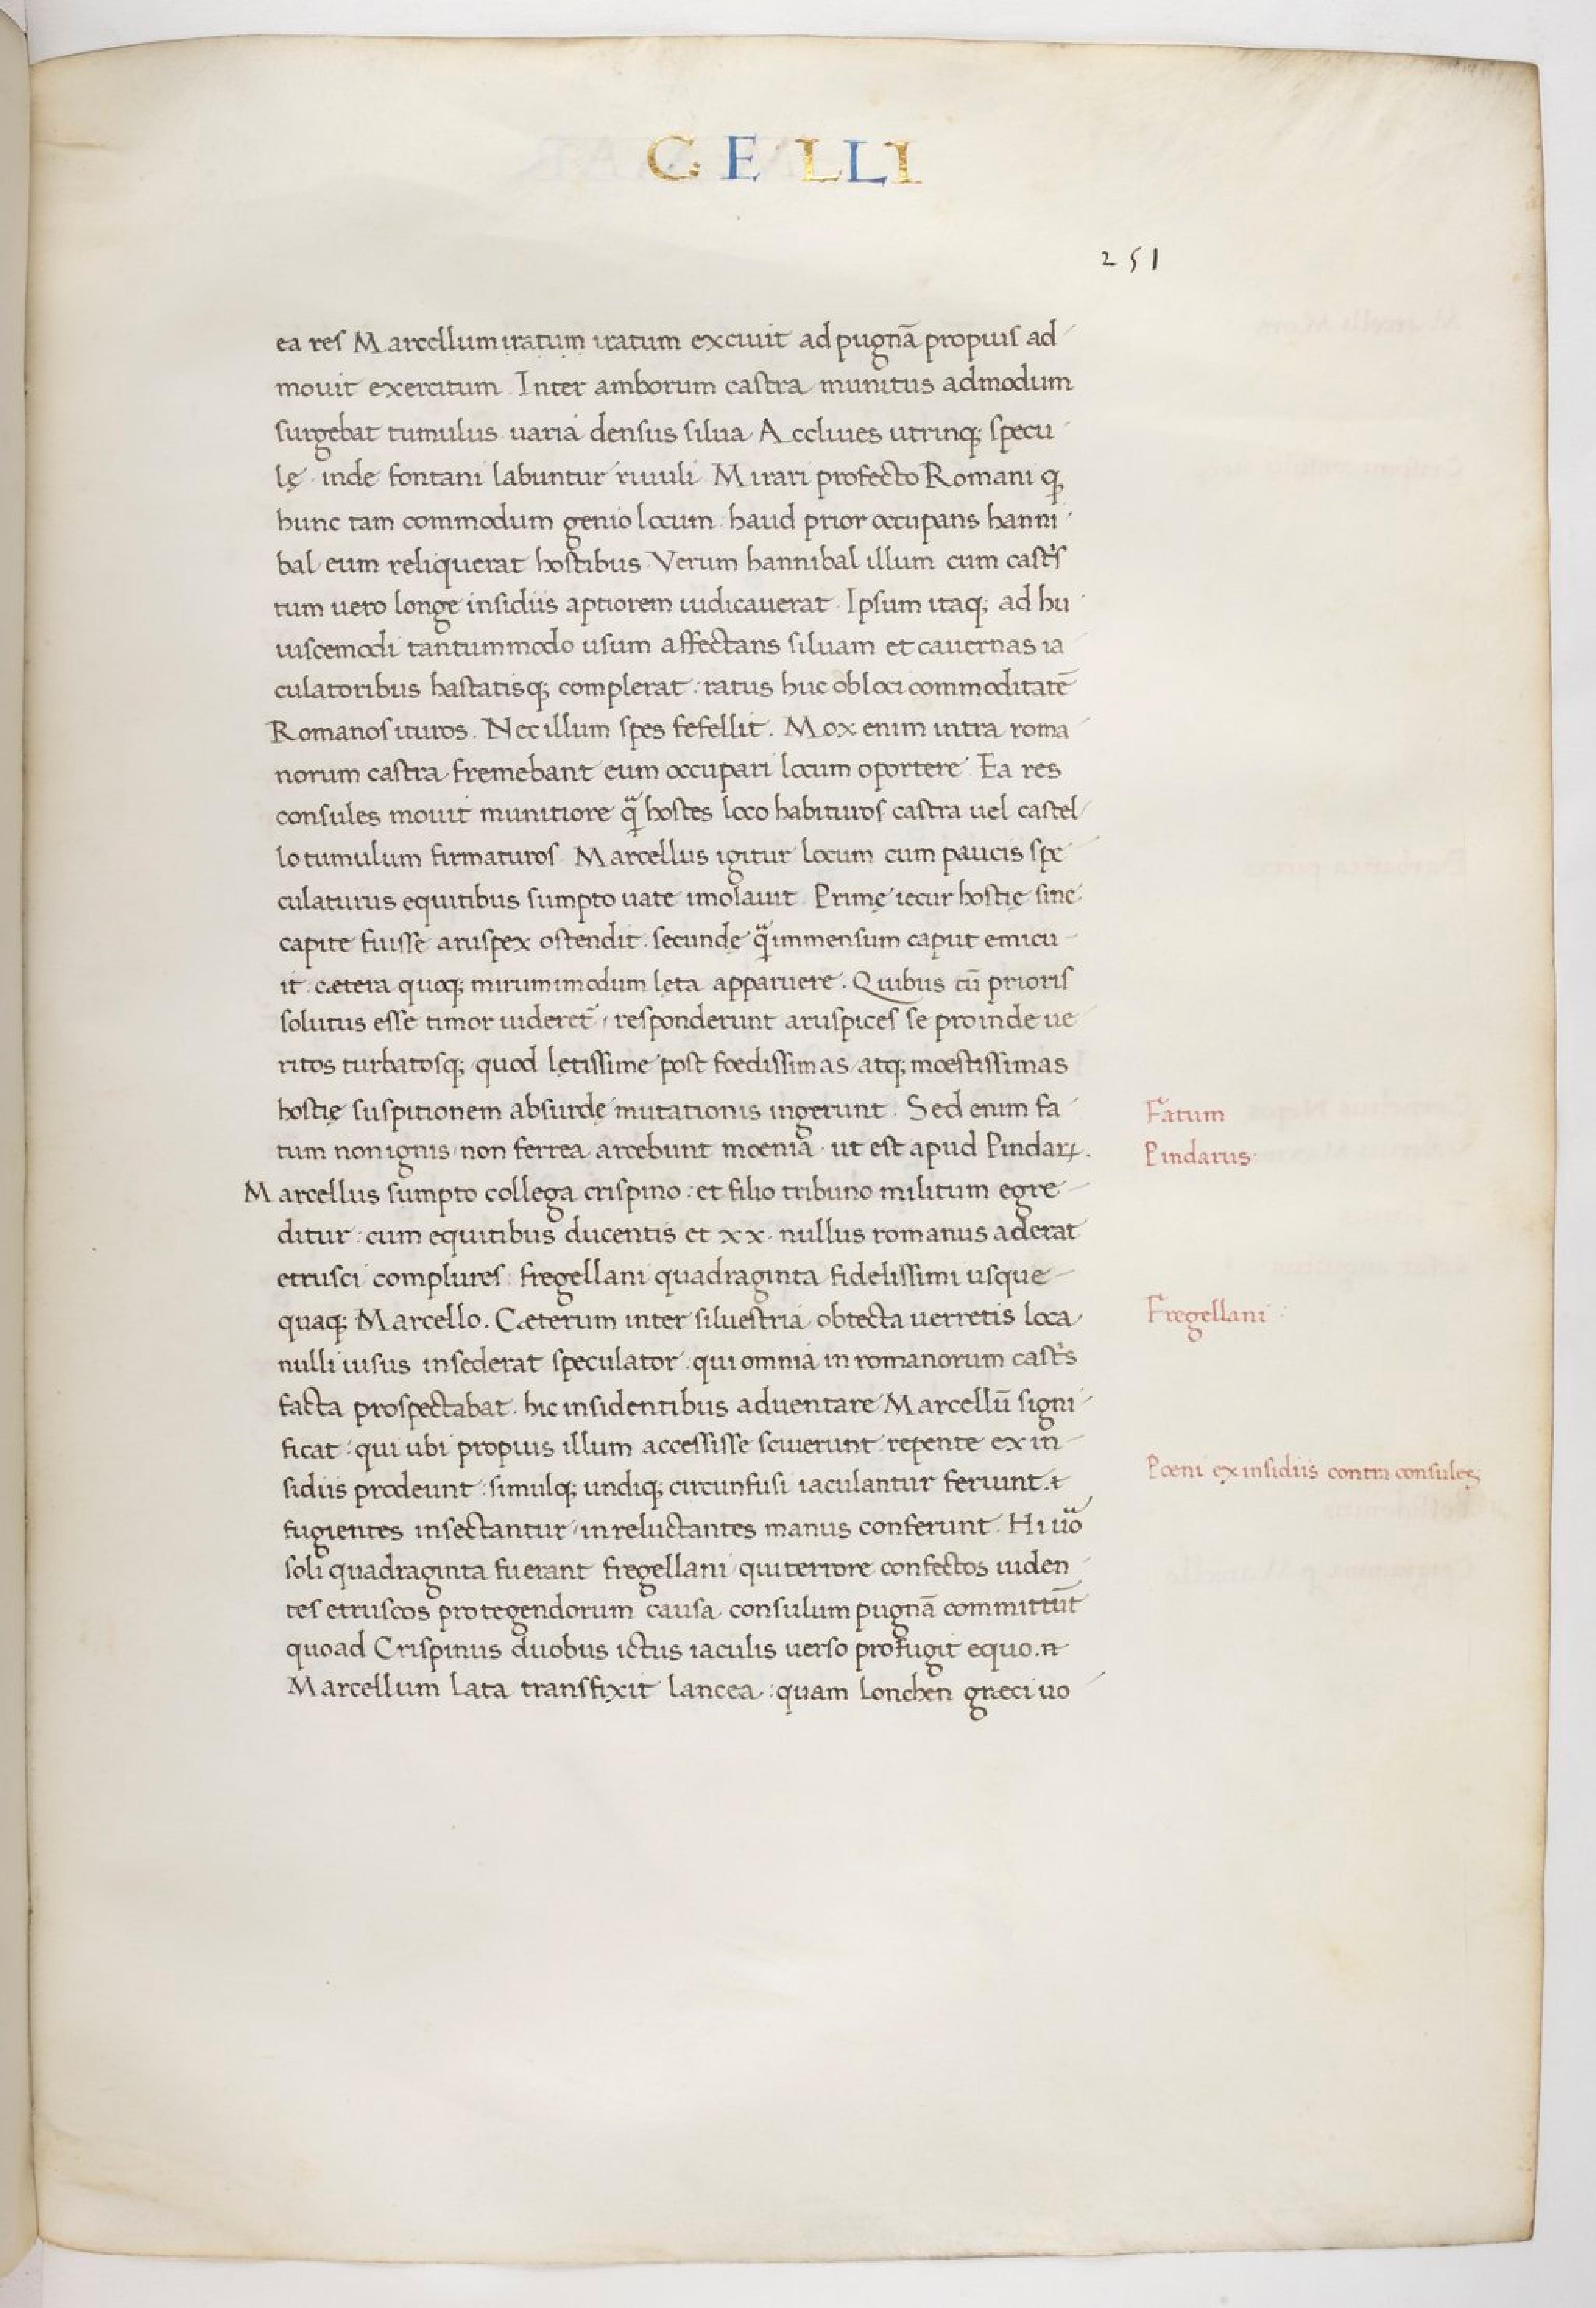 CELLI
251
ea res Marcellum iratum iratum exciuit ad pugnā propius ad
mouit exercitum. Inter amborum castra munitus admodum
surgebat tumulus uaria densus silua. Accliues utrinq; specu
lę inde fontani labuntur riuuli. Mirari profecto Romani ꝙ
hunc tam commodum genio locum: haud prior occupans hanni
bal eum reliquerat hostibus. Verum hannibal illum cum castris
tum uero longe insidiis aptiorem iudicauerat. Ipsum itaq; ad hu
iuscemodi tantummodo usum affectans siluam et cauernas ia
culatoribus hastatisq; complerat: ratus huc ob loci commoditatē
Romanos ituros. Nec illum spes fefellit. Mox enim intra roma
norum castra fremebant eum occupari locum oportere. Ea res
consules mouit munitiore qͣ hostes loco habituros castra uel castel
lo tumulum firmaturos. Marcellus igitur locum cum paucis spe
culaturus equitibus sumpto uate imolauit. Primę iecur hostię sine
capite fuisse aruspex ostendit. secunde qͣ immensum caput emicu
it: cætera quoq; mirum imodum lęta apparuere. Quibus cū prioris
solutus esse timor uideret̃, responderunt aruspices se proinde ue
ritos turbatosq; quod lętissime post fœdissimas atq; moestissimas
hostię suspitionem absurdę mutationis ingerunt. Sed enim fa
tum non ignis, non ferrea arcebunt moenia. ut est apud Pindarꝝ.
Marcellus sumpto collega crispino: et filio tribuno militum egre
ditur: cum equitibus ducentis et xx. nullus romanus aderat
etrusci complures: fregellani quadraginta fidelissimi usque
quaq; Marcello. Cæterum inter siluestria obtecta uerretis loca
nulli uisus insederat speculator. qui omnia in romanorum castris
facta prospectabat. hic insidentibus aduentare Marcellū signi
ficat: qui ubi propius illum accessisse sciuerunt repente ex in
sidiis prodeunt: simulq; undiq; circunfusi iaculantur feriunt. &
fugientes insectantur, in reluctantes manus conferunt. Hi uͣo
soli quadraginta fuerant fregellani qui terrore confectos uiden
tes etruscos protegendorum causa consulum pugnā committūt
quoad Crispinus duobus ictus iaculis uerso profugit equo. &
Marcellum lata transfixit lancea: quam lonchen græci uo
Fatum
Pindarus
Fregellani
Pœni ex insidiis contra consules